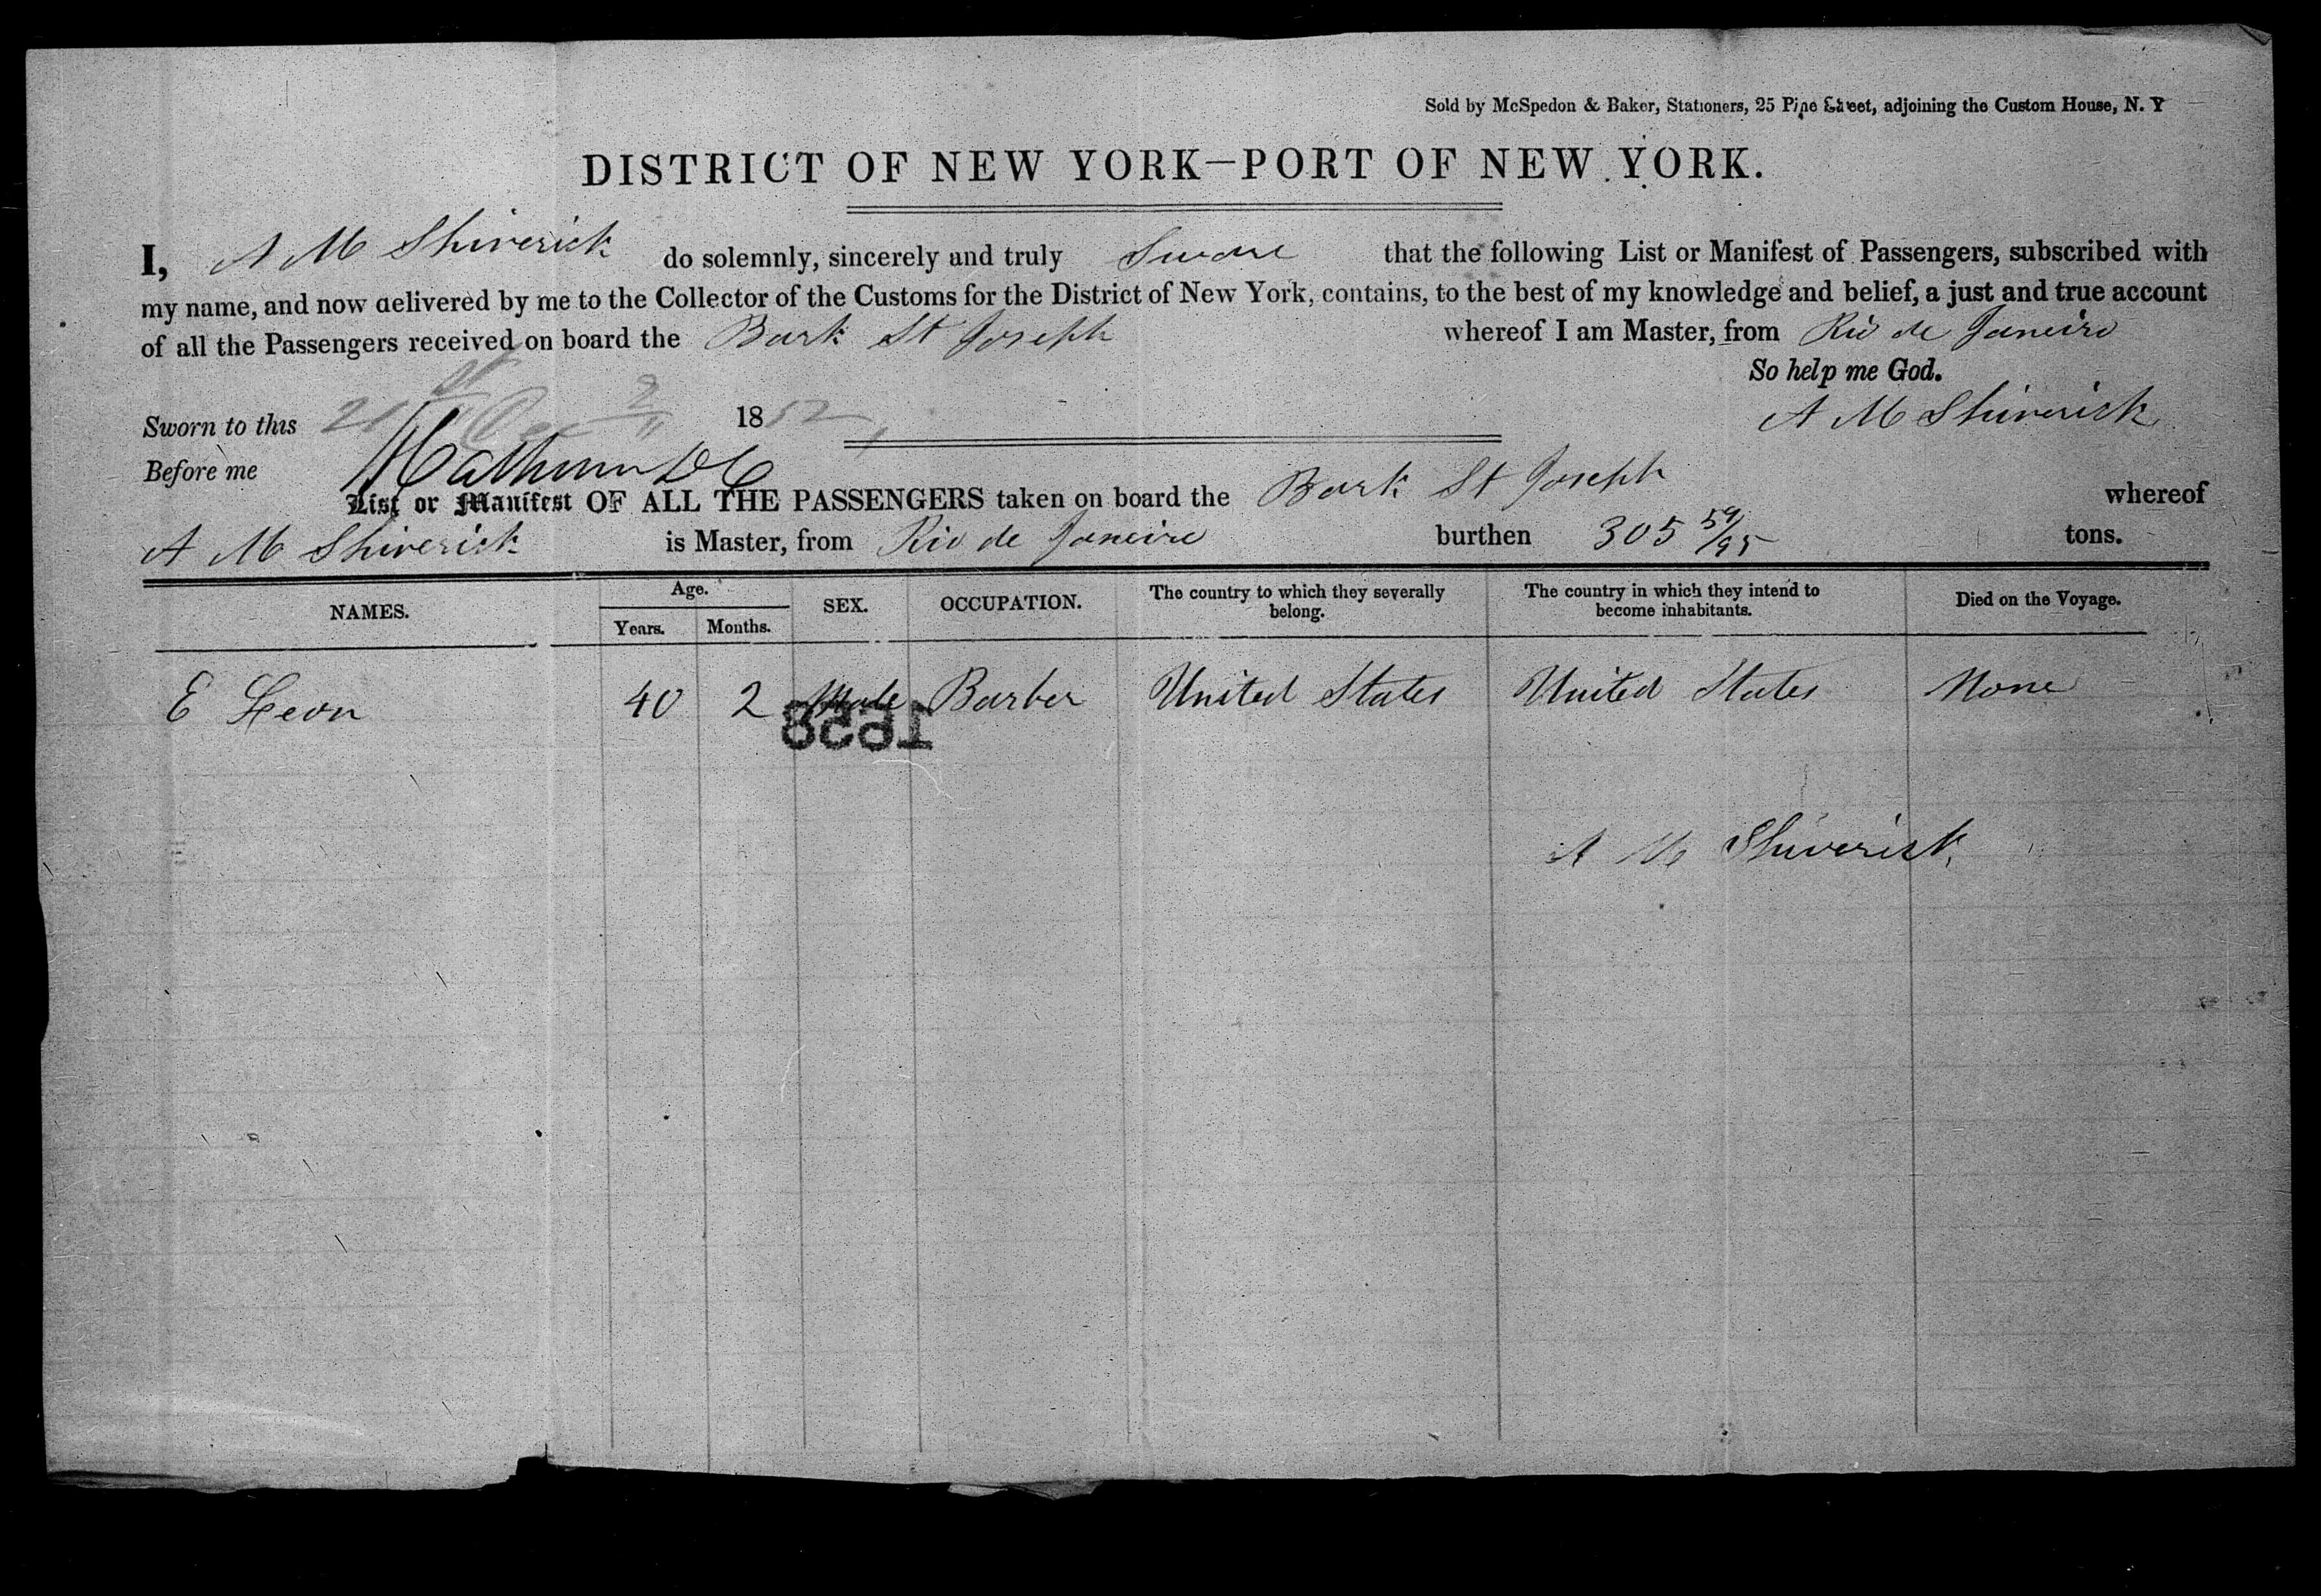 Sold by McSpedon & Baker, Stationers, 25 Pine Street, adjoining the Custom House, N. Y
DISTRICT OF NEW YORK—PORT OF NEW YORK.
I, A M Shiverick do solemnly, sincerely and truly Swear that the following List or Manifest of Passengers, subscribed with
my name, and now delivered by me to the Collector of the Customs for the District of New York, contains, to the best of my knowledge and belief, a just and true account
of all the Passengers received on board the Bark St Joseph whereof I am Master, from Rio de Janeiro
So help me God.
Sworn to this 21st 1852 A M Shiverick
Before me
List or Manifest OF ALL THE PASSENGERS taken on board the Bark St Joseph whereof
A M Shiverick is Master, from Rio de Janeiro burthen 305 59/95 tons.
NAMES. Age. Years. Months. SEX. OCCUPATION. The country to which they severally belong. The country in which they intend to become inhabitants. Died on the Voyage.
E Leon 40 2 Male Barber United States United States None
1658
A M Shiverick